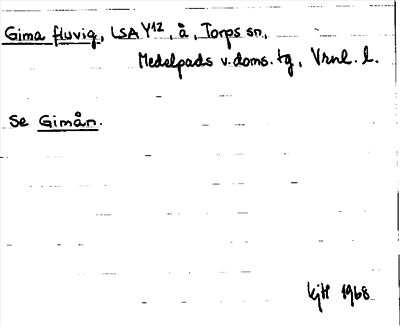 Gima fluvig, LSA Y12, å, Torps sn,
Medelpads v. doms. tg, Vrnl. l.
Se Gimån.
KjH 1968